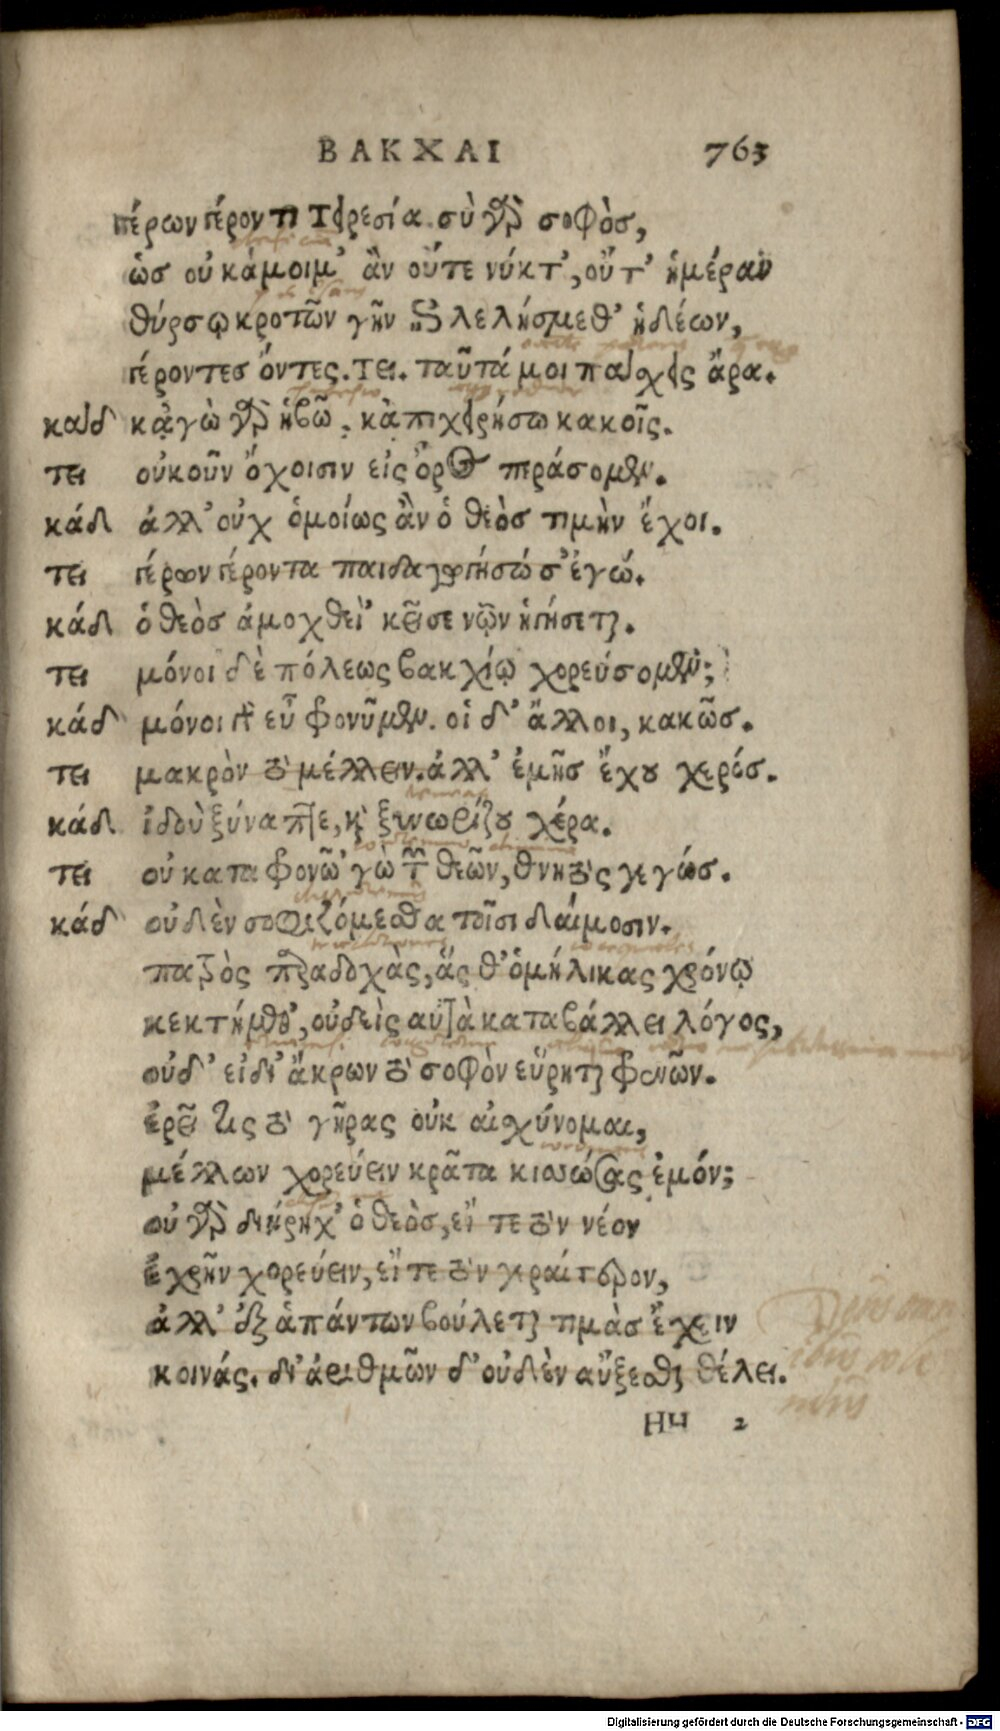 ΒΑΚΧΑΙ 763
γέρων γέροντι Τειρεσία. σὺ γὰρ σοφὸς,
ὡς οὐ κάμοιμ' ἂν οὔτε νύκτ', οὔτ' ἡμέραν
θύρσῳ κροτῶν γῆν ἐπιλελήσμεθ' ἡδέων,
γέροντες ὄντες. τει. ταῦτά μοι πάσχεις ἄρα.
καδ κᾀγὼ γὰρ ἡβῶ, κᾀπιχειρήσω κακοῖς.
τει οὐκοῦν ὄχοισιν εἰς ὄρος περάσομεν.
κάδ ἀλλ' οὐχ ὁμοίως ἂν ὁ θεὸς τιμὴν ἔχοι.
τει γέρων γέροντα παιδαγωγήσω σ' ἐγώ.
κάδ ὁ θεὸς ἀμοχθεὶ κεῖσε νῷν ἡγήσεται.
τει μόνοι δὲ πόλεως βακχίῳ χορεύσομεν;
κάδ μόνοι γὰρ εὖ φρονοῦμεν. οἱ δ' ἄλλοι, κακῶς.
τει μακρὸν τὸ μέλλειν. ἀλλ' ἐμῆς ἔχου χερός.
κάδ ἰδοὺ ξύναπτε, καὶ ξυνωρίζου χέρα.
τει οὐ καταφρονῶ 'γὼ τῶν θεῶν, θνητὸς γεγώς.
κάδ οὐδὲν σοφιζόμεσθα τοῖσι δαίμοσιν.
πατρὸς παραδοχὰς, ἅς θ' ὁμήλικας χρόνῳ
κεκτήμεθ', οὐδεὶς αὐτὰ καταβάλλει λόγος,
οὐδ' εἰ δι' ἄκρων τὸ σοφὸν εὕρηται φρενῶν.
ἐρεῖ τις τὸ γῆρας οὐκ αἰσχύνομαι,
μέλλων χορεύειν κρᾶτα κισσώσας ἐμόν;
οὐ γὰρ διῄρηχ' ὁ θεὸς, εἴ τε τὸν νέον
ἐχρῆν χορεύειν, εἴ τε τὸν γεραίτερον,
ἀλλ' ἐξ ἁπάντων βούλεται τιμὰς ἔχειν
κοινάς. δι' ἀριθμῶν δ' οὐδὲν αὔξεσθαι θέλει.
ΗΗ 2
Digitalisierung gefördert durch die Deutsche Forschungsgemeinschaft - DFG